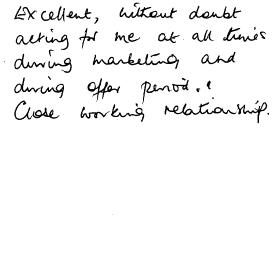 Excellent, without doubt
acting for me at all times
during marketing and
during offer period..
Close working relationship.